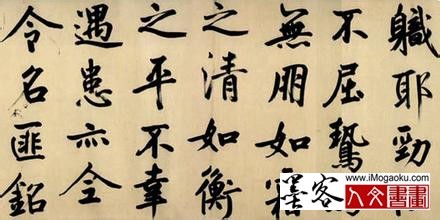 軄耶勁
不屈鷙
無朋如
之清如衡
之平不幸
遇患亦全
令名匪銘
墨客
www.iMogaoku.com
人文書畫